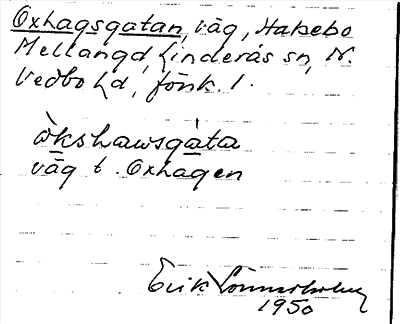 Oxhagsgatan, väg, Hakebo
Mellangd, Linderås sn, N.
Vedbo hd, Jönk. l.
òkshawsgáta
väg t. Oxhagen
Erik
1950